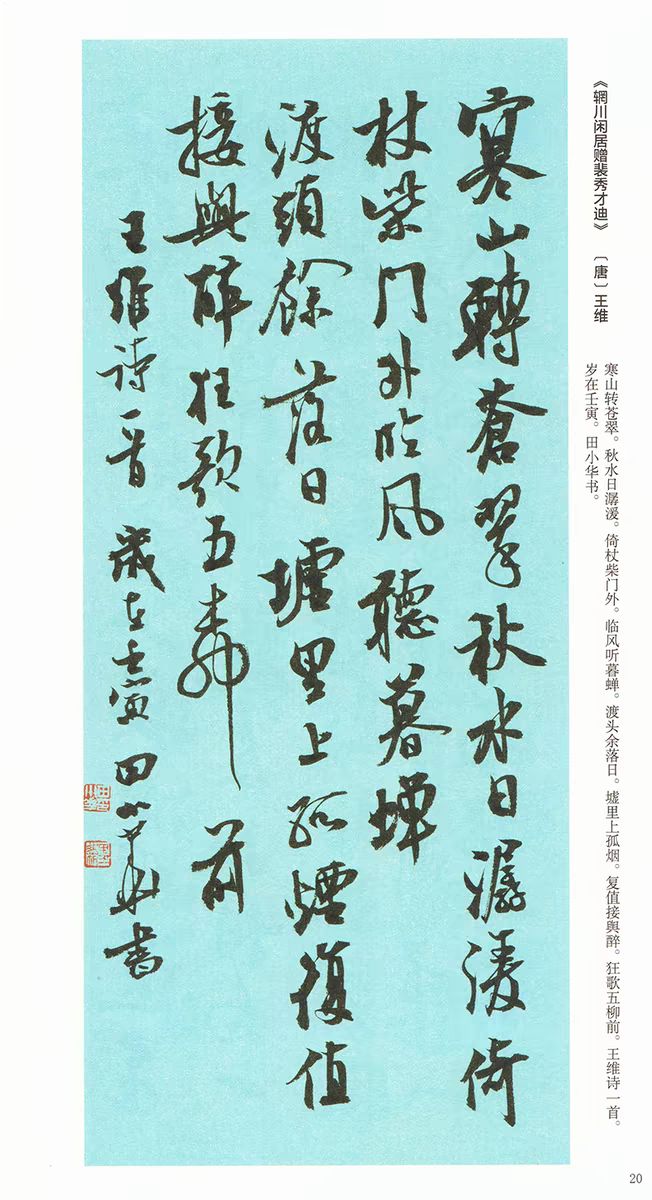 《辋川闲居赠裴秀才迪》 〔唐〕王维
寒山转苍翠。秋水日潺湲。倚杖柴门外。临风听暮蝉。渡头余落日。墟里上孤烟。复值接舆醉。狂歌五柳前。王维诗一首。
岁在壬寅。田小华书。
寒山轉蒼翠秋水日潺湲倚
杖柴门外临风聽暮蟬
渡頭餘落日墟里上孤煙復值
接輿醉狂歌五柳前
王維诗一首 歲在壬寅 田小華书
20